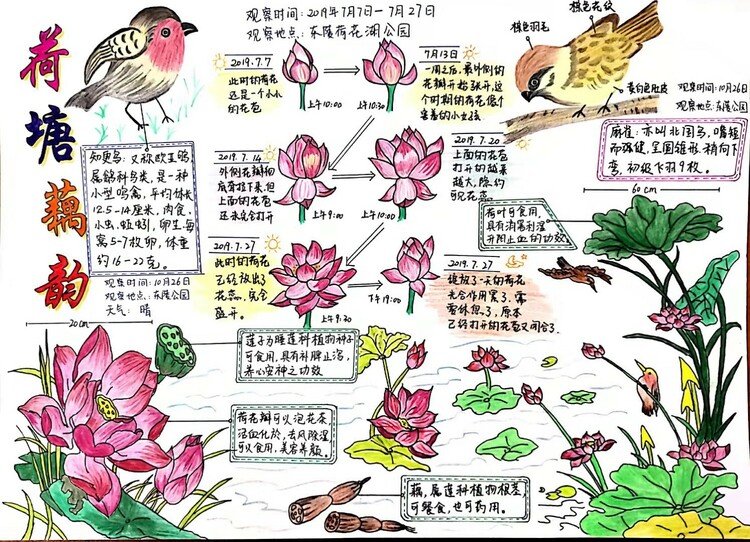 荷塘藕韵
观察时间：2019年7月7日一7月27日
观察地点：东陵荷花湖公园
2019.7.7
此时的荷花
还是一个小小
的花苞
上午10:00
上午10:30
7月13日
一周之后，最外侧的
花瓣开始张开，这
个时期的荷花像个
害羞的小女孩
2019.7.14
外侧花瓣向
底脊拉下来，但
上面的花苞
还未完全打开
上午9:00
上午10:00
2019.7.20
上面的花苞
打开的越来
越大，隐约
可见花蕊
2019.7.27
此时的荷花
已经放出了
花蕊，完全
盛开。
上午9:30
下午19:00
2019.7.27
绽放了一天的荷花
光合作用累了，需
要休息了，原本
已经打开的花苞又闭合了
知更鸟：又称欧亚鸲
属鹟科鸟类，是一种
小型鸣禽，平均体长
12.5-14厘米，肉食，
小虫、蚯蚓，卵生每
窝5-7枚卵，体重
约16-22克。
观察时间：10月26日
观察地点：东陵公园
天气：晴
棕色羽毛
棕色花纹
黄白色肚皮
观察时间：10月26日
观察地点：东陵公园
麻雀：亦叫北国鸟，嘴短
而强健，呈圆锥形，稍向下
弯，初级飞羽9枚。
60cm
荷叶可食用，
具有消暑利湿
升阳止血的功效。
20cm
莲子为睡莲科植物种子
可食用，具有补脾止泻，
养心安神之功效
荷花瓣可以泡花茶
活血化淤，去风除湿
可以食用，美容养颜。
藕，属莲科植物根茎，
可餐食，也可药用。